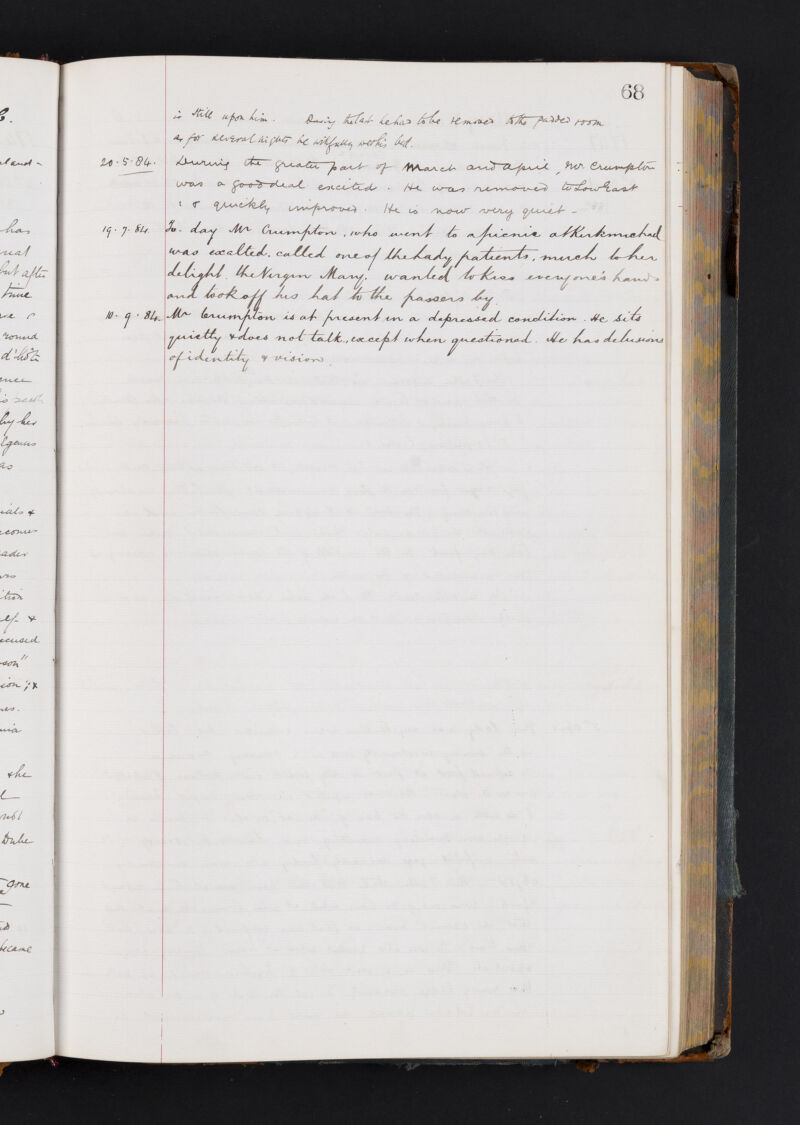 68
is still upon him. During the last he has to be removed to the padded room
as for several nights he wilfully wet his bed.
20.5.84. During the greater part of March and April, Mr Crumpton
was a good deal excited. He was removed to Low East
& quickly improved. He is now very quiet -
19.7.84. To-day Mr Crumpton, who went to a picnic at Kirkmichael
was exalted, called one of the lady patients, much to her
delight, the Virgin Mary, wanted to kiss everyone's hands
and took off his hat to the passers by.
10.9.84. Mr Crumpton is at present in a depressed condition. He sits
quietly & does not talk, except when questioned. He has delusions
of identity & vision.
has
but after
round
by her
as
& he
not
gone
became